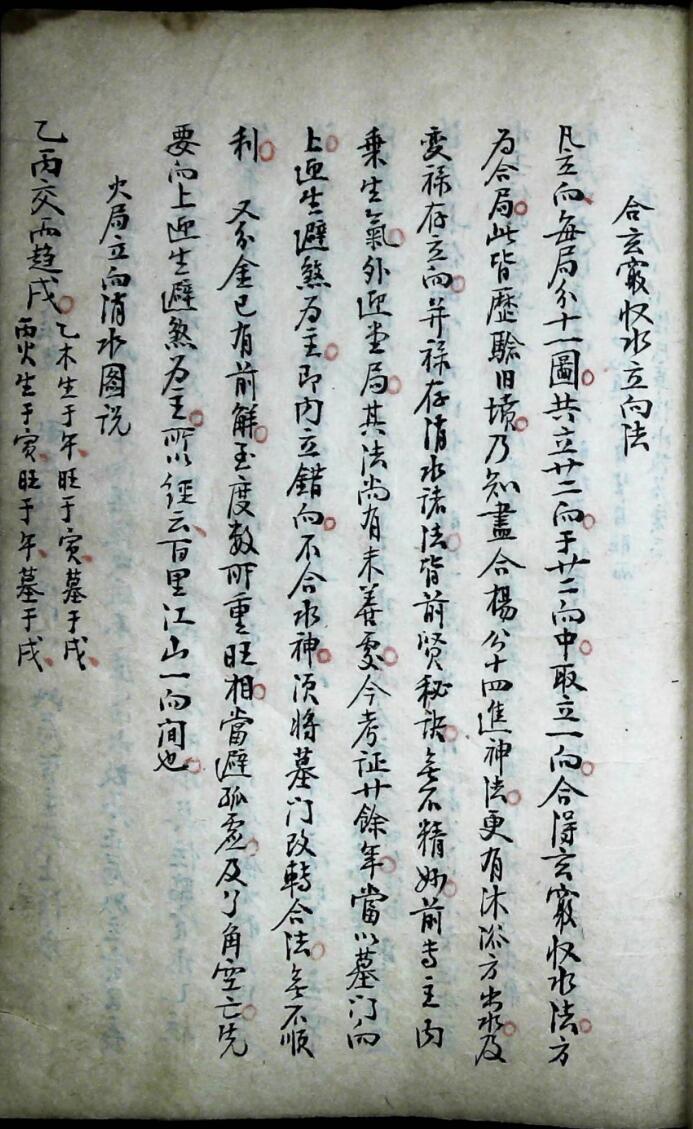 合玄竅收水立向法
凡立向每局分十一圖共立廿二向于廿二向中取立一向合得玄竅收水法方
为合局此皆歷驗旧墳乃知盡合楊公十四進神法更有沐浴方出水及
变祿存立向并祿存消水诸法皆前贤秘訣无不精妙前专主内
乗生氣外迎堂局其法尚有未善處今考证廿餘年當以墓门向
上迎生避煞为主即内立錯向不合水神须将墓门改轉合法无不順
利　又分金已有前解至度数所重旺相當避孤虚及丫角空亡先
要向上迎生避煞为主所以经云百里江山一向间也
火局立向消水图说
乙丙交而趋戌　乙木生于午旺于寅墓于戌
丙火生于寅旺于午墓于戌